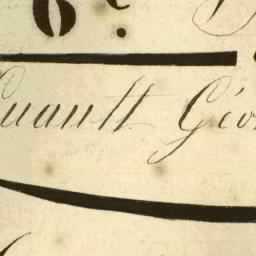 6e.
uault Géo